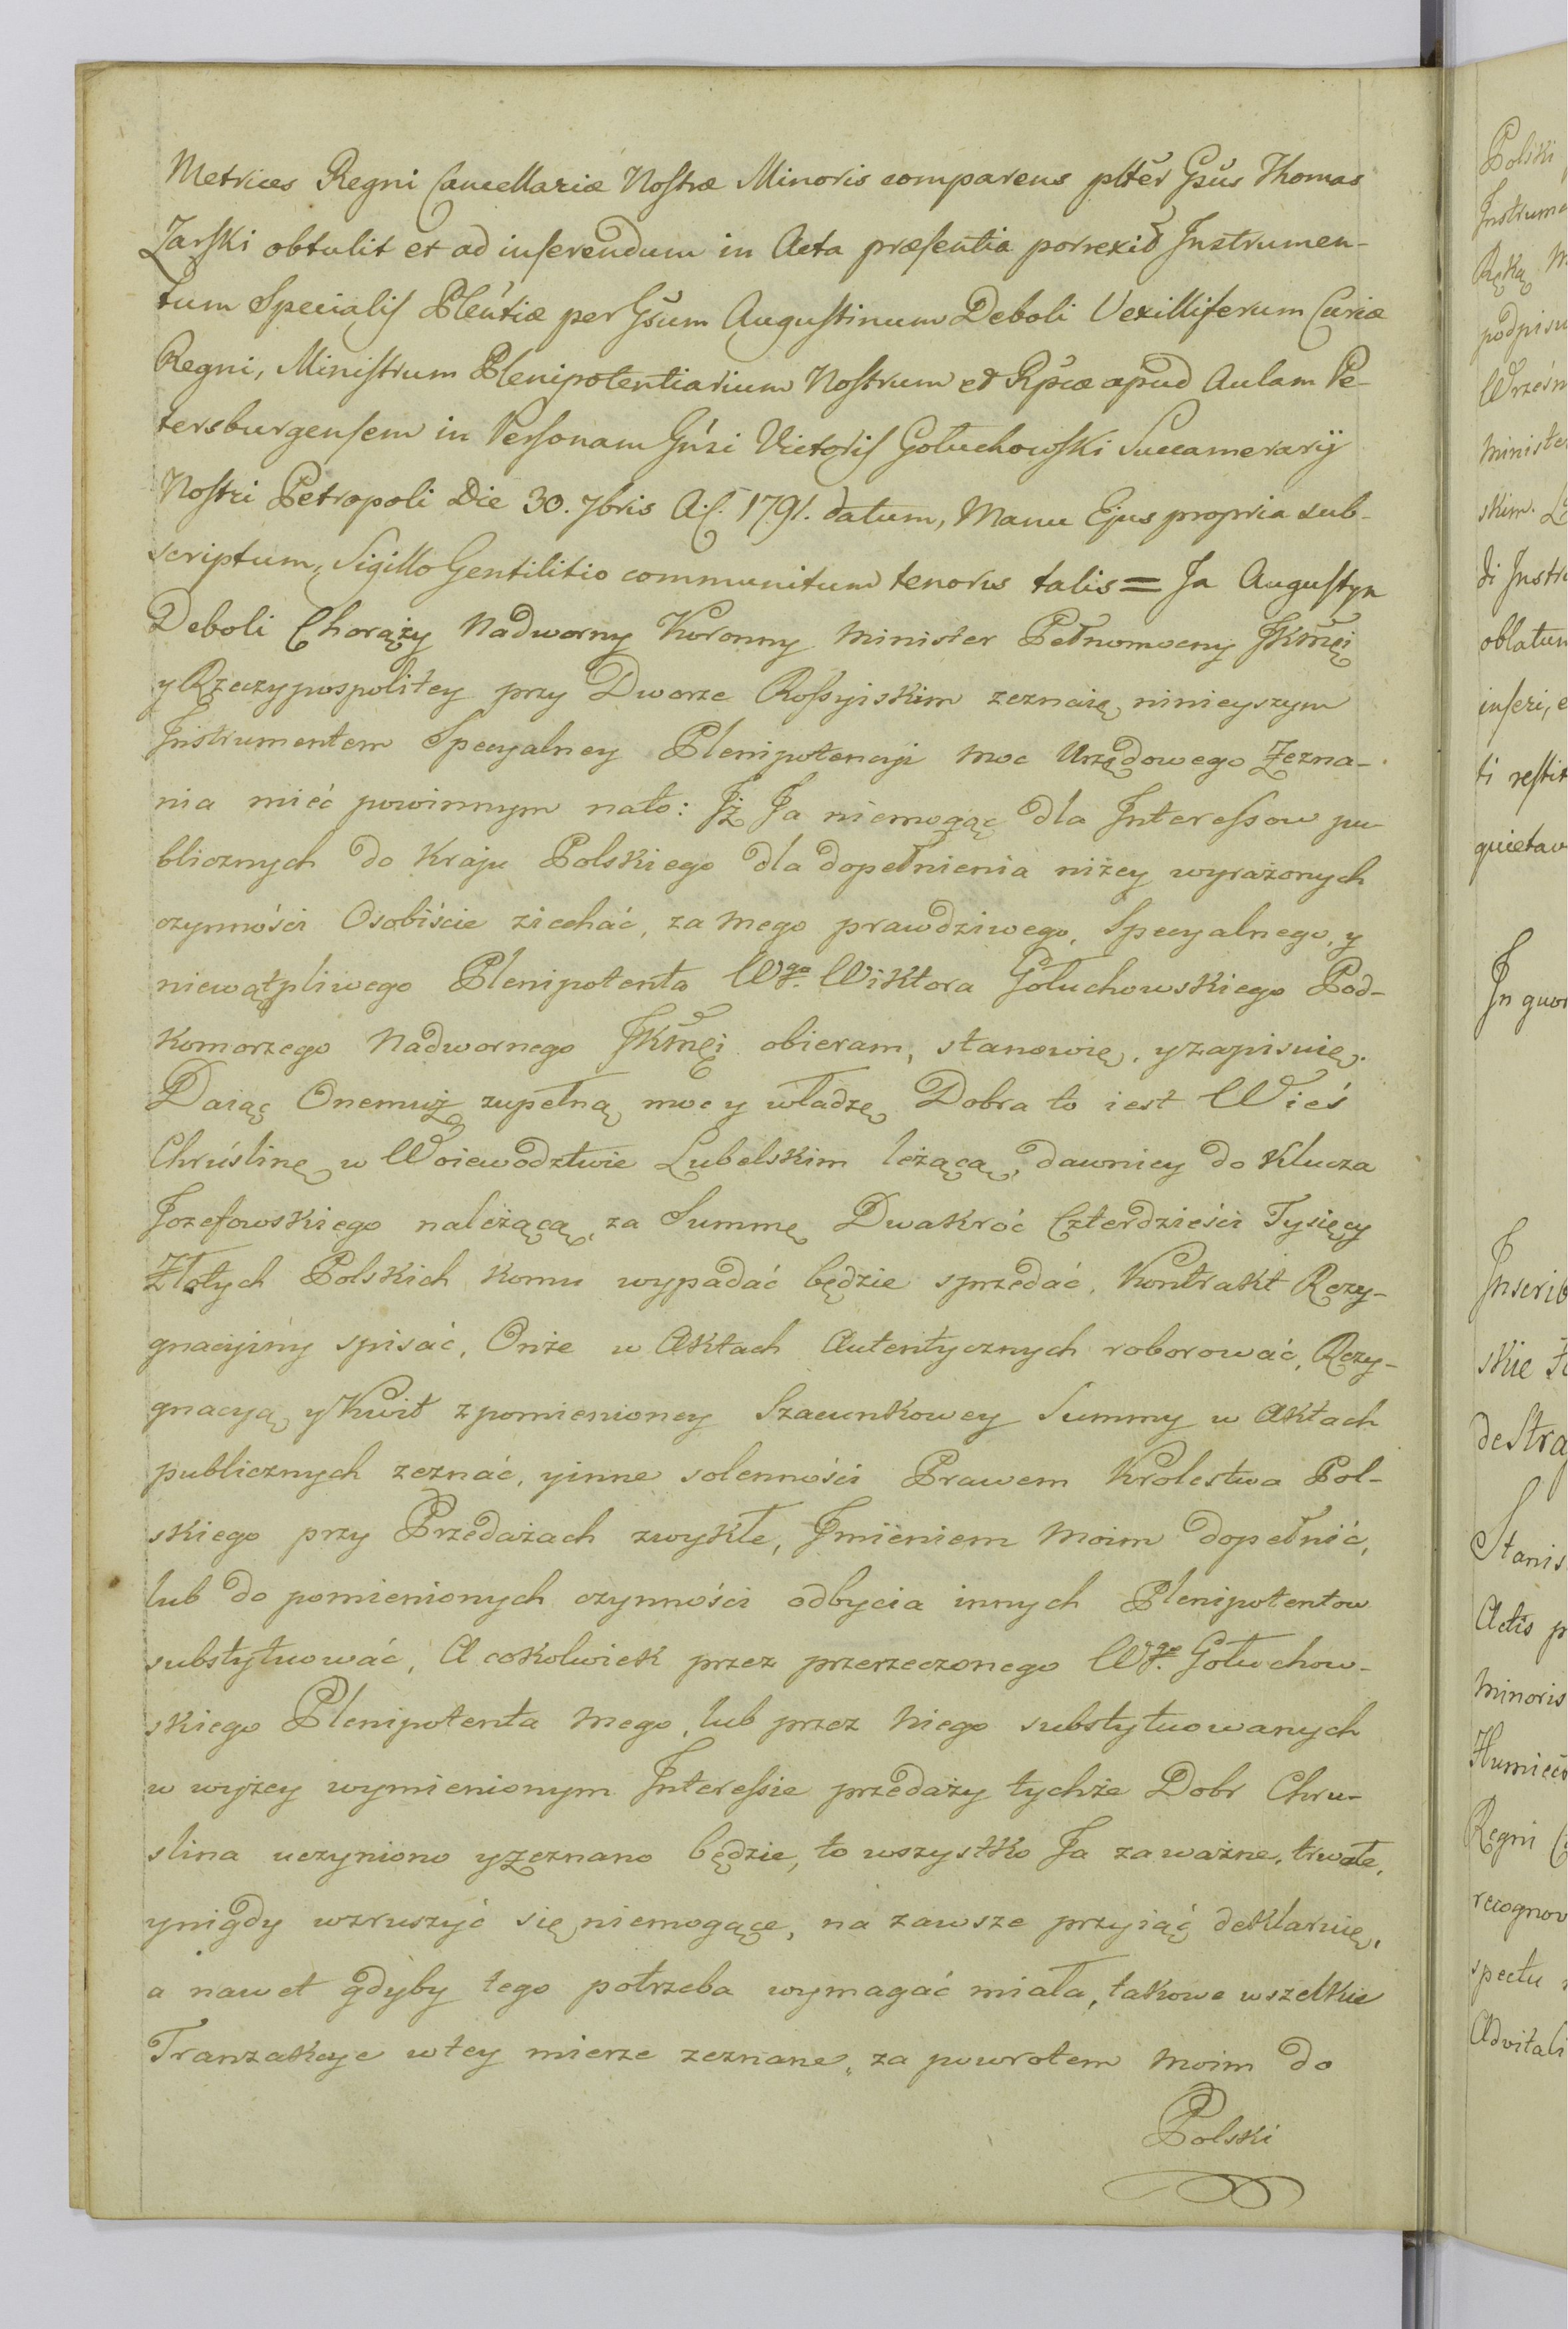 Metrices Regni Cancellariæ Nostræ Minoris comparens pltěr Gsus Thomas
Zarski obtulit et ad inserendum in Acta præsentia porrexit Instrumen-
tum Specialis Plentiæ per Gsum Augustinum Deboli Vexilliferum Curiæ
Regni, Ministrum Plenipotentiarium Nostrum et Rpcæ apud Aulam Pe-
tersburgensem in Personam Gnsi Victoris Gołuchowski Succamerarij
Nostri Petropoli Die 30. 7bris A.C. 1791. datum, Manu Ejus propria sub-
scriptum, Sigillo Gentilitio communitum tenoris talis = Ja Augustyn
Deboli Chorąży Nadworny Koronny Minister Pełnomocny JKMci
y Rzeczypospolitey przy Dworze Rossyiskim zeznaię ninieyszym
Instrumentem Specyalney Plenipotencyi moc Urzędowego Zezna-
nia mieć powinnym nato: Iż Ja niemogąc dla Interessow pu-
blicznych do Kraju Polskiego dla dopełnienia niżey wyrażonych
czynności Osobiście ziechać, za mego prawdziwego, Specyalnego, y
niewątpliwego Plenipotenta Wgo. Wiktora Gołuchowskiego Pod-
komorzego Nadwornego JKMci obieram, stanowię, y zapisuię.
Daiąc Onemuż zupełną moc y władzę Dobra to iest Wieś
Chruślinę w Woiewodztwie Lubelskim leżącą, dawniey do Klucza
Jozefowskiego należącą, za Summę Dwakroć Czterdzieści Tysięcy
Złotych Polskich komu wypadać będzie sprzedać, Kontrakt Rezy-
gnacyiny spisać, Onże w Aktach Autentycznych roborować, Rezy-
gnacyą y Kwit z pomienioney Szacunkowey Summy w Aktach
publicznych zeznać, y inne solenności Prawem Krolestwa Pol-
skiego przy Przedażach zwykłe, Imieniem moim dopełnić,
lub do pomienionych czynności odbycia innych Plenipotentow
substytuować, A cokolwiek przez przerzeczonego Wgo. Gołuchow-
skiego Plenipotenta mego, lub przez niego substytuowanych
w wyżey wymienionym Interessie przedaży tychże Dobr Chru-
slina uczyniono y zeznano będzie, to wszystko Ja za ważne, trwałe,
y nigdy wzruszyć się niemogące, na zawsze przyiąć deklaruię,
a nawet gdyby tego potrzeba wymagać miała, takowe wszelkie
Tranzakcye w tey mierze zeznane, za powrotem moim do
Polski
Polski
Instrume
Ręką M
podpisu
Wrześn
Ministe
skim.
di Instru
oblatum
inseri, e
ti restit
quietav
In quor
Inscrib
skie
de Stra
Stanis
Actis p
Minoris
Humiec
Regni
recognov
spectu
Advitali